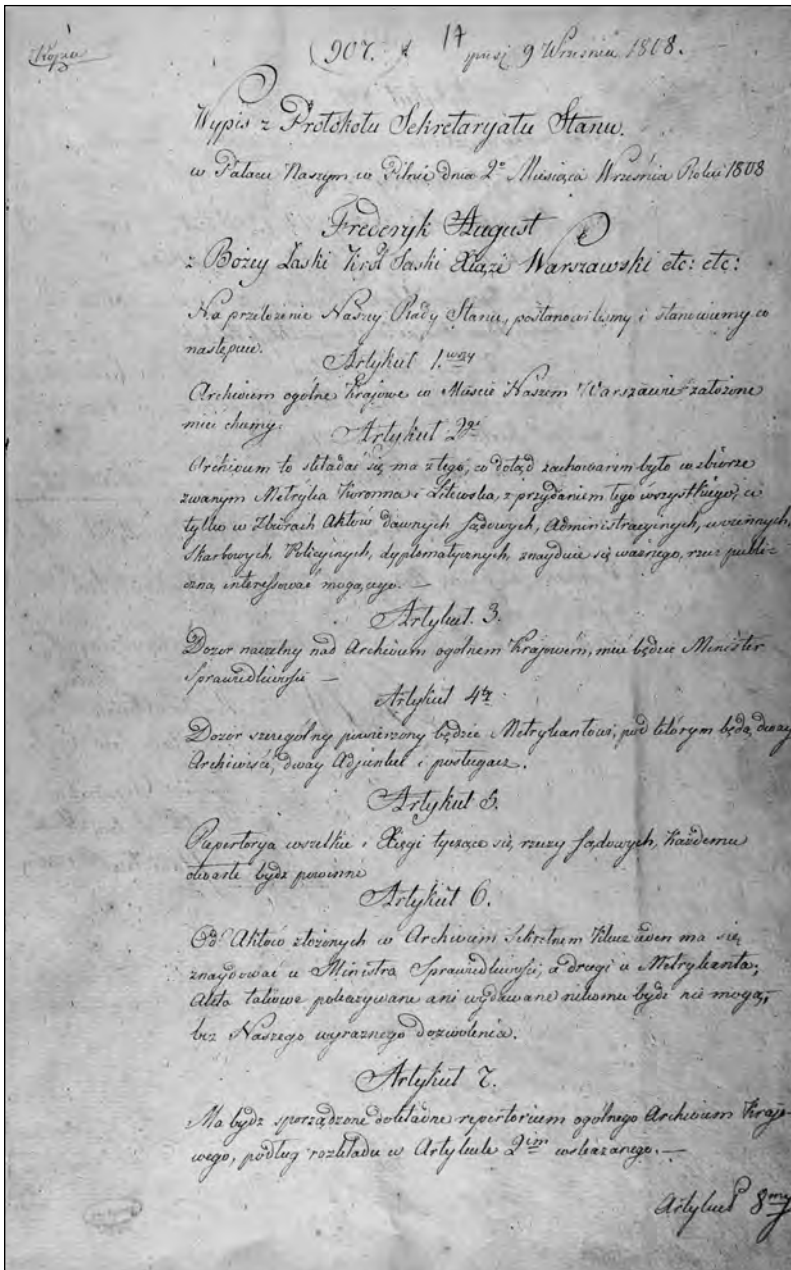 Kopia
(907. 17
9 Września 1808.
Wypis z Protokołu Sekretaryatu Stanu.
w Pałacu Naszym w Pilnic dnia 2º Miesiąca Września Roku 1808
Frederyk August
z Bożey Łaski Król Saski Xiąże Warszawski etc: etc:
Na przełożenie Naszey Rady Stanu, postanowiliśmy i stanowiemy co
następuie.
Artykuł 1.wszy
Archivum ogólne Kraiowe w Mieście Naszem Warszawie założone
mieć chcemy.
Artykuł 2gi
Archivum to składać się ma z tego, co dotąd zachowanem było w zbiorze
zwanym Metryka Koronna i Litewska, z przydaniem tego wszystkiego, co
tylko w Zbiorach Aktów dawnych Sądowych, Administracyinych, woiennych,
Skarbowych, Policyinych, dyplomatycznych, znayduie się ważnego, rzecz publi-
czną interessować mogącego. —
Artykuł. 3.
Dozor naczelny nad Archivum ogólnem Kraiowem, mieć będzie Minister
Sprawiedliwości —
Artykuł 4ty
Dozor szczególny powierzony będzie Metrykantowi, pod którym będą dway
Archiwiści, dway Adjunkci i posługacz.
Artykuł 5.
Repertorya wszelkie i Xięgi tyczące się rzeczy sądowych, każdemu
otwarte bydź powinne
Artykuł 6.
Od Aktów złożonych w Archivum Sekretnem Klucz ieden ma się
znaydować u Ministra Sprawiedliwości, a drugi u Metrykanta,
Akta takowe pokazywane ani wydawane nikomu bydź nie mogą,
bez Naszego wyraznego dozwolenia.
Artykuł 7.
Ma bydź sporządzone dokładne repertorium ogólnego Archivum Kraio-
wego, podług rozkładu w Artykule 2im wskazanego. —
Artykuł 8my